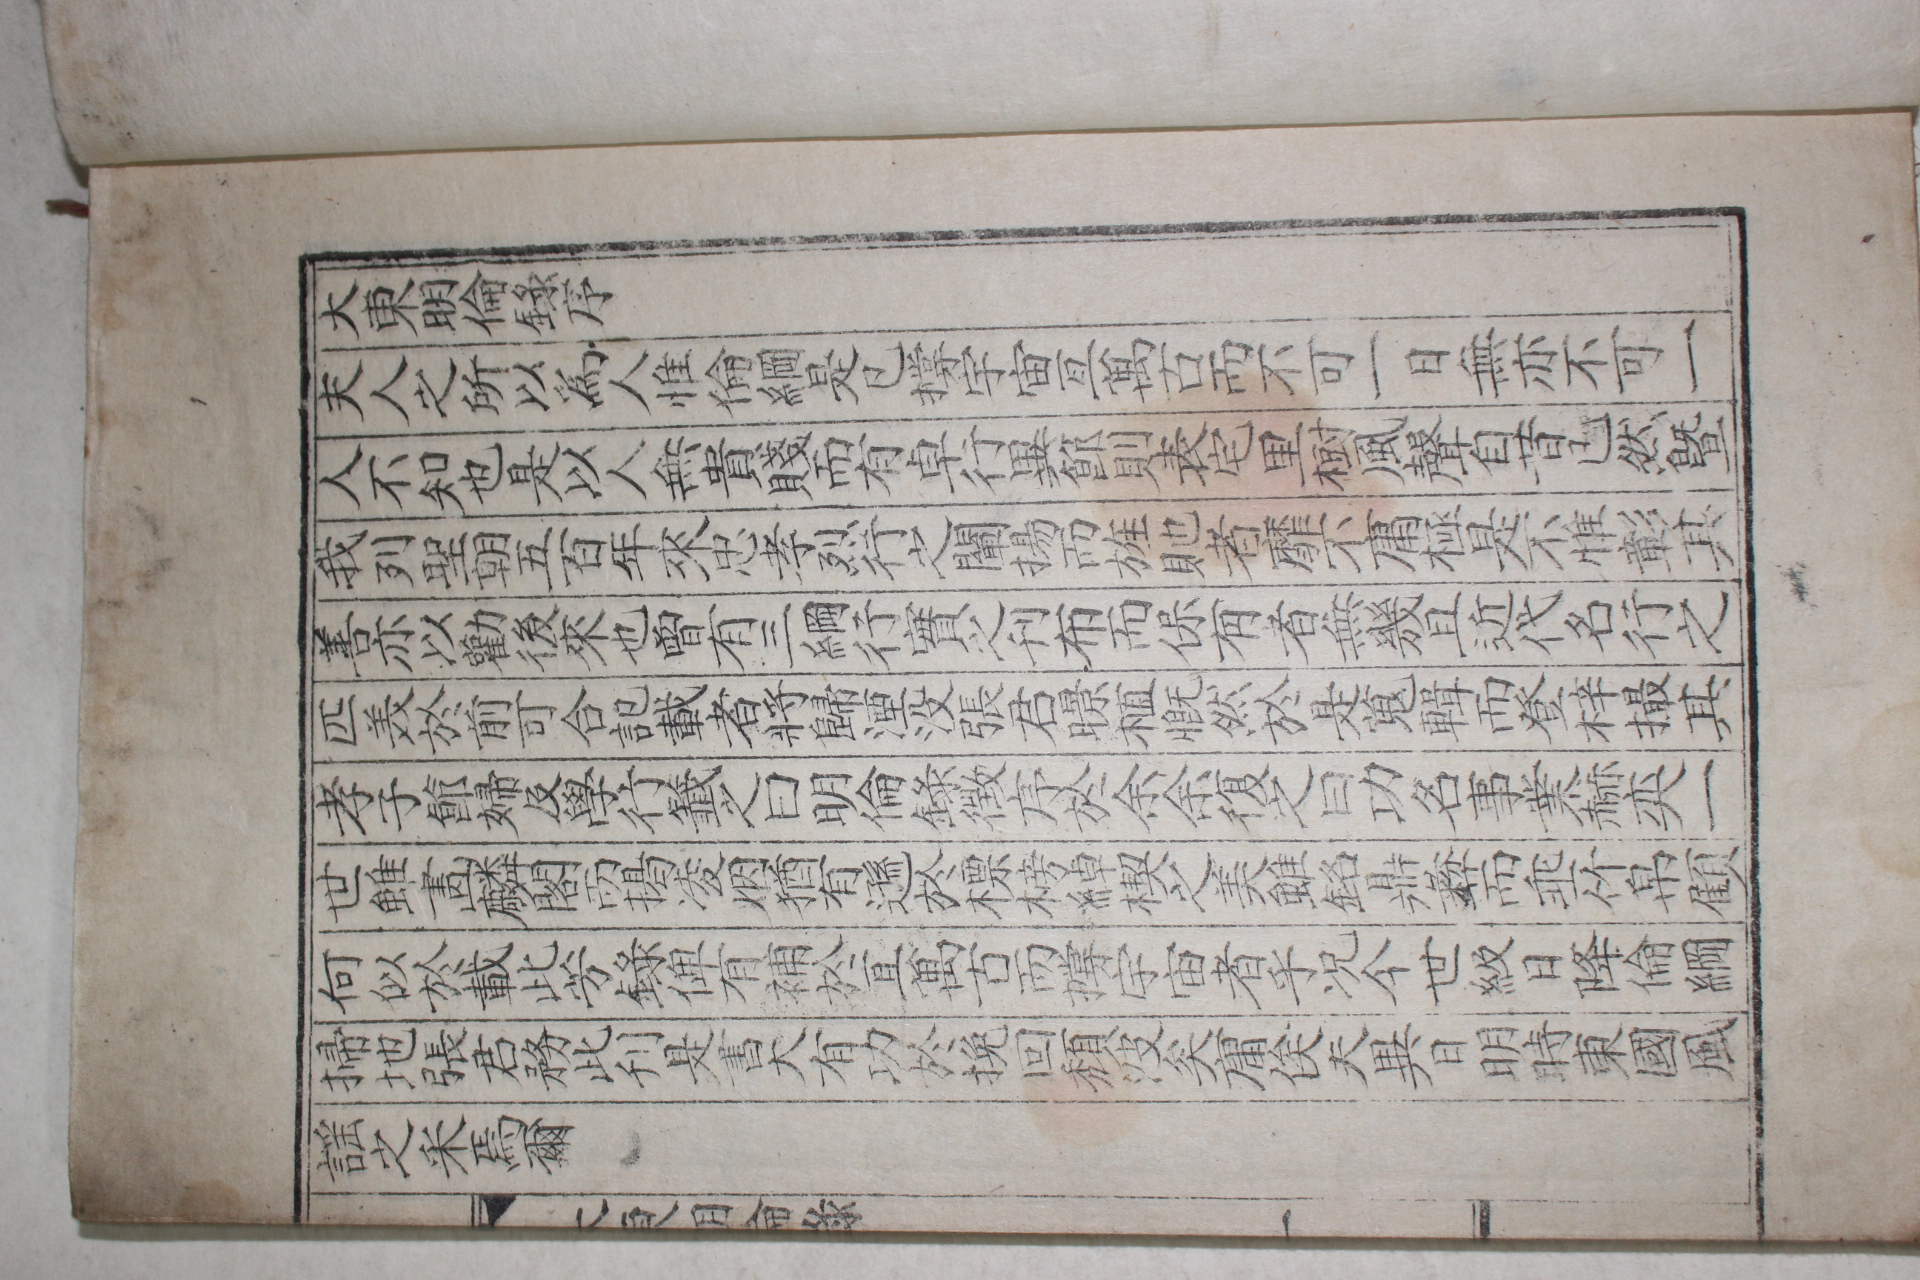 大東明倫錄序
夫人之所以為人惟倫綱是已撐宇宙亙萬古而不可一日無亦不可一
人不知也是以人無貴賤而有卓行異節則表宅里樹風聲自昔已然曁
我列聖朝五百年來忠孝烈行之闡揚而旌貤者靡不庸極是不惟彰其
善亦以勸後來也曾有三綱行實之刊布而保有者無幾且近代名行之
匹美於前可合記載者將歸湮沒張君暻植慨然於是蒐輯而登梓撮其
孝子節婦及學行籤之曰明倫錄徵序於余余復之曰功名事業赫奕一
世雖畫麟閣而揭凌烟猶有遜於標榜綽楔之美雖銘鼎彝而垂竹帛顧
何似於載比芳錄俾有補於亘萬古而撐宇宙者乎況今世級日降倫綱
掃地張君務此刊是書大有功於挽回頹波矣庸俟夫異日明時東國風
謠之采焉爾
大東明倫錄 一